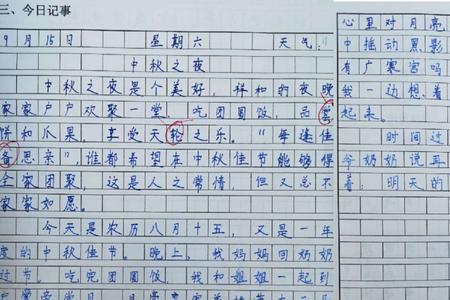 三、今日记事
9月15日 星期六 天气:
中秋之夜
中秋之夜是个美好，祥和的夜晚
家家户户欢聚一堂，吃团圆饭，品尝
饼和瓜果，享受天轮之乐。"每逢佳
备思亲"，谁都希望在中秋佳节能够得
全家团聚，这是人之常情，但又总不
家家如愿。
今天是农历八月十五，又是一年
度的中秋佳节。晚上，我妈妈回奶奶
过节。吃完团圆饭，我和姐姐一起到
心里对月亮
中推动黑影
有广寒宫吗
我一边想着
起来。
时间过
爷奶奶说再
着，明天的